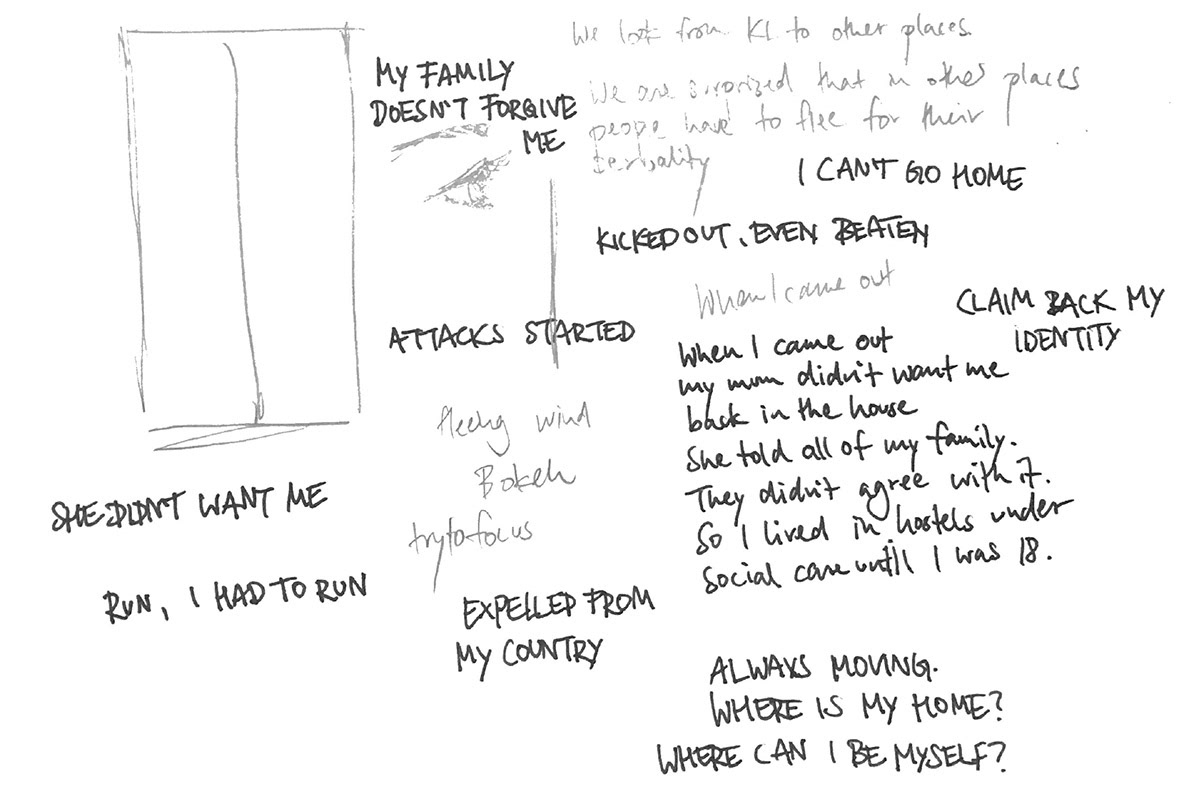 We look from KL to other places.
We are surprized that in other places
people have to flee for their
sexuality
MY FAMILY
DOESN'T FORGIVE
ME
I CAN'T GO HOME
KICKED OUT, EVEN BEATEN
When I came out
CLAIM BACK MY
IDENTITY
ATTACKS STARTED
When I came out
my mum didn't want me
back in the house
She told all of my family.
They didn't agree with it.
So I lived in hostels under
Social care until I was 18.
wind
Bokeh
try to focus
SHE DIDN'T WANT ME
RUN, I HAD TO RUN
EXPELLED FROM
MY COUNTRY
ALWAYS MOVING.
WHERE IS MY HOME?
WHERE CAN I BE MYSELF?